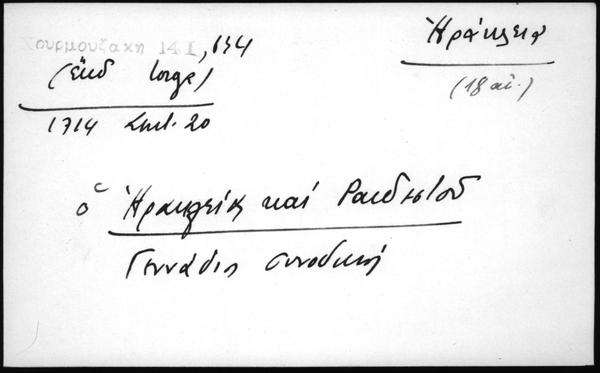 Χουρμουζάκη 14 I, 654
(ἔκδ Iorga)
1714 Σεπτ. 20
Ἡράκλεια
(18 αἰ.)
ὁ Ἡρακλείας καὶ Ραιδεστοῦ
Γεννάδιος συνοδικῇ